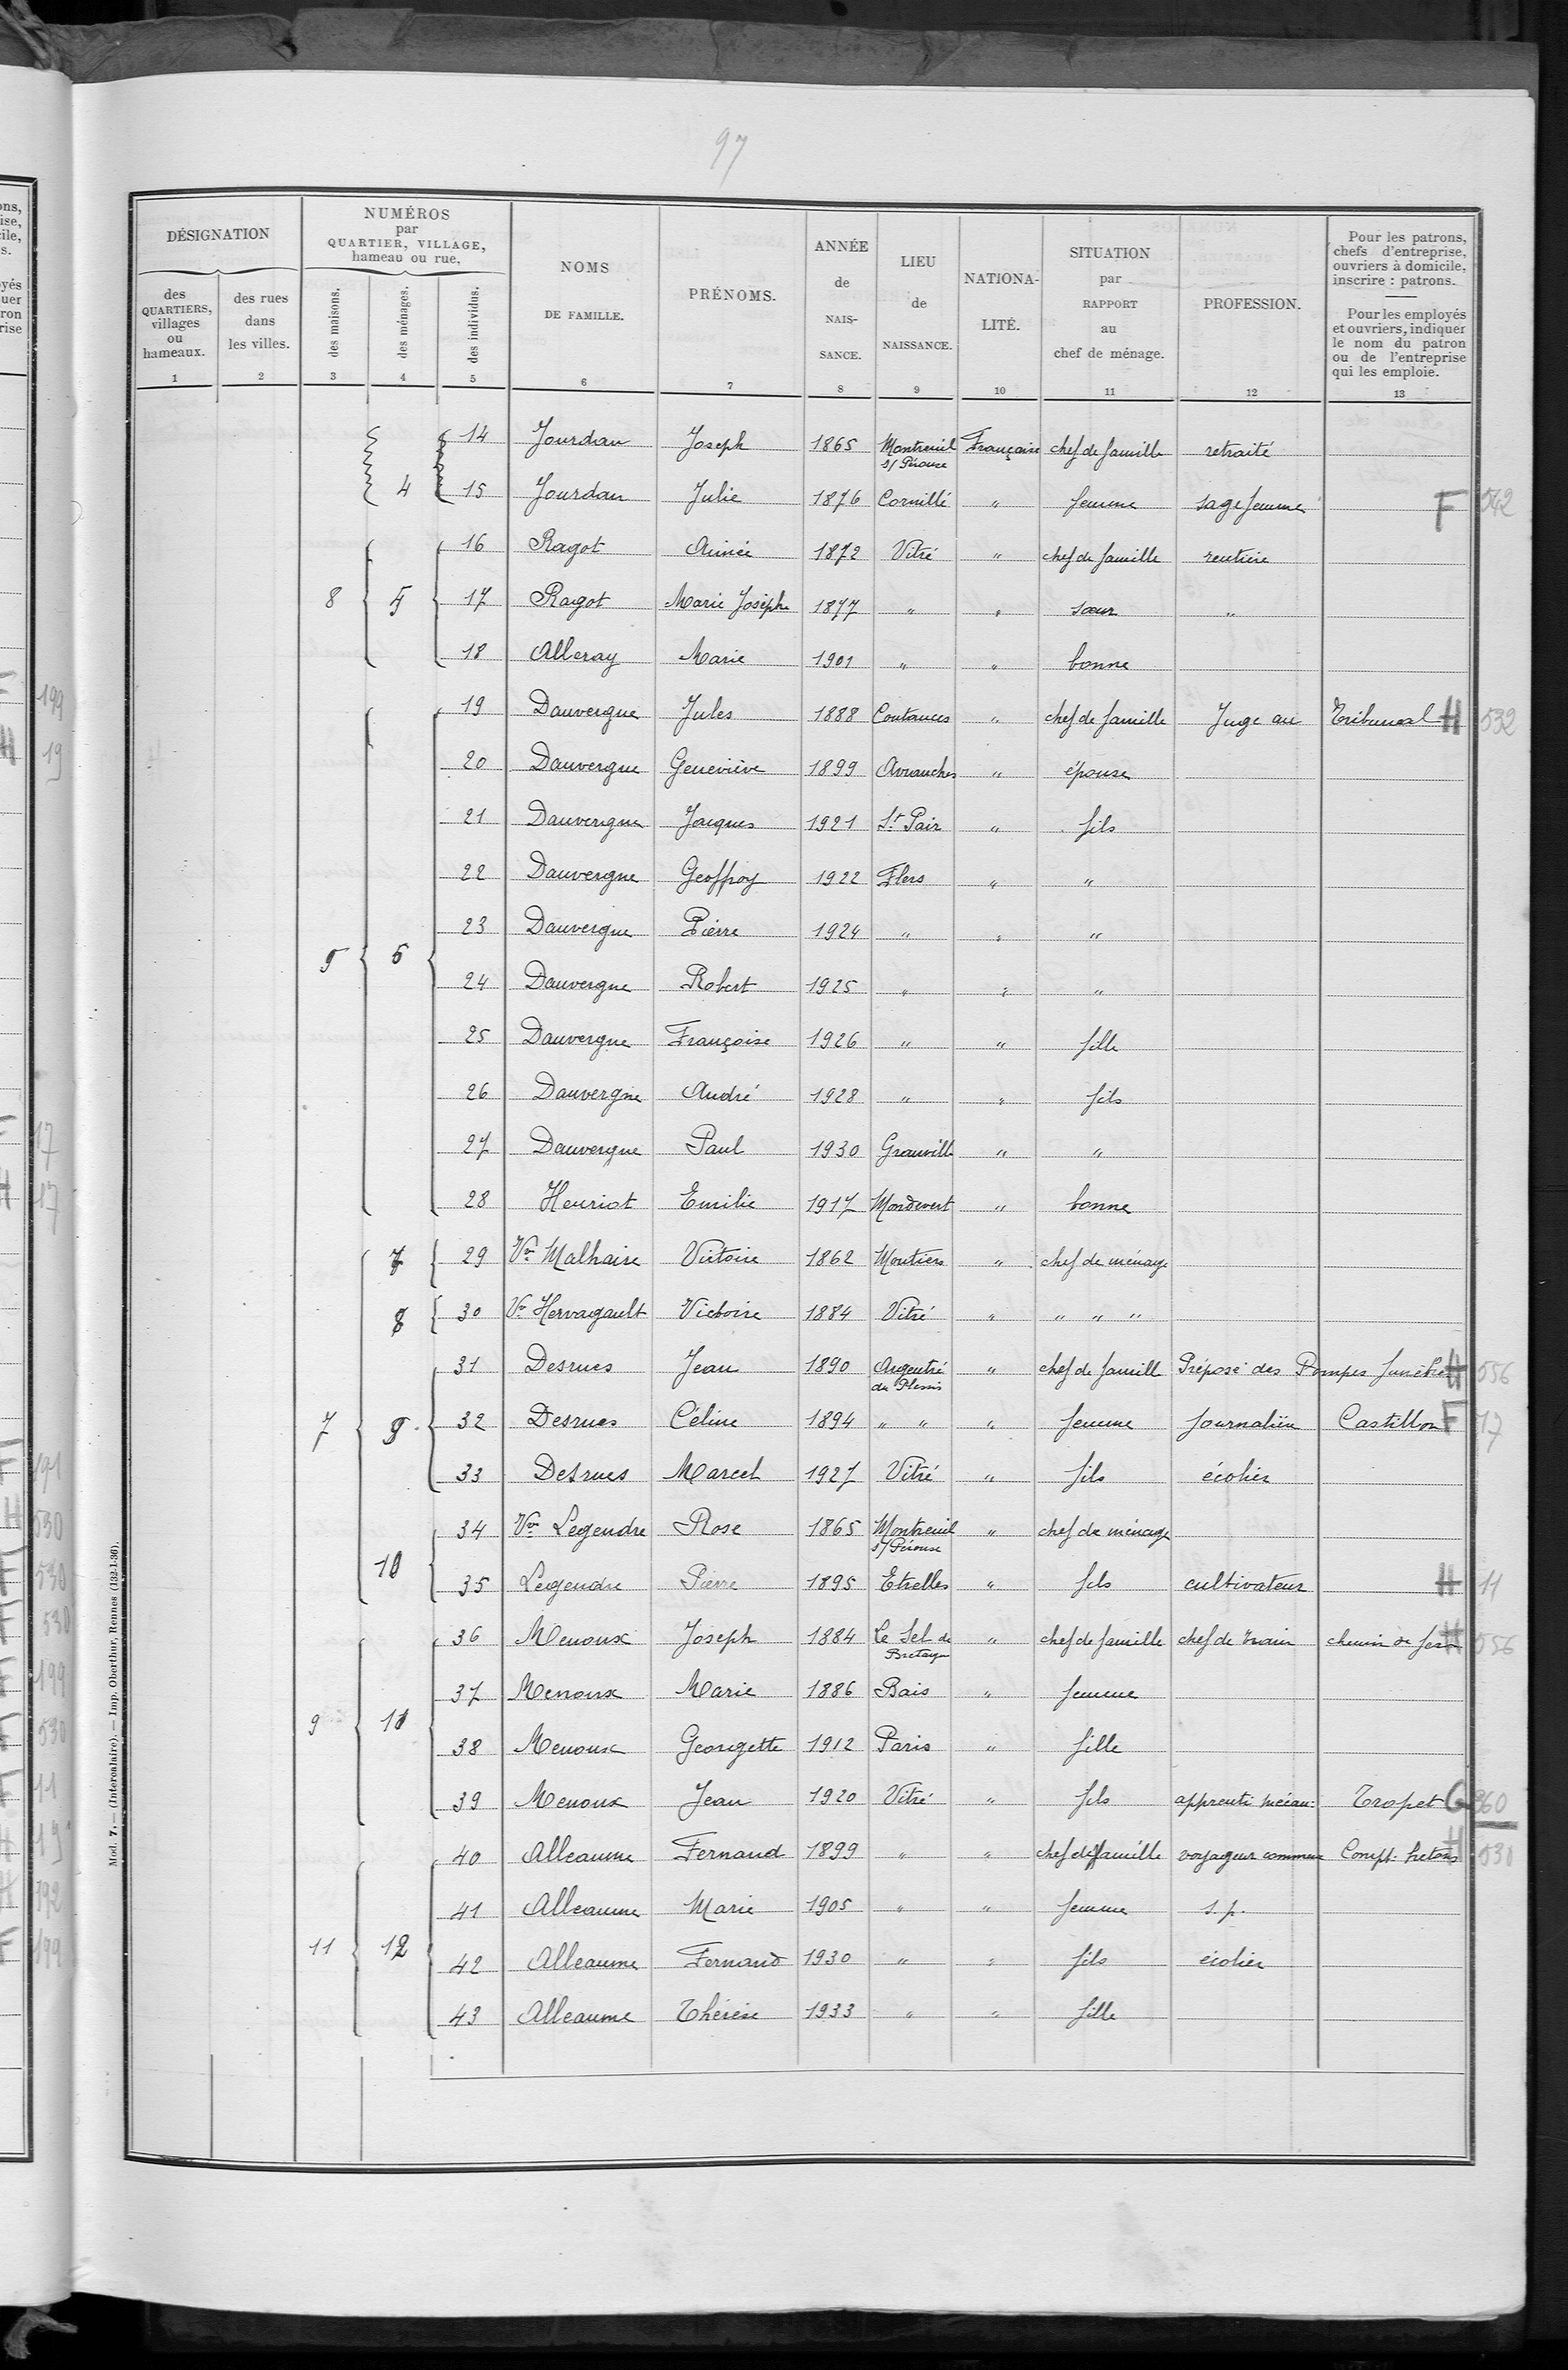 97
DÉSIGNATION
NUMÉROS
par
QUARTIER, VILLAGE,
hameau ou rue,
des QUARTIERS, villages ou hameaux.
des rues dans les villes.
des maisons.
des ménages.
des individus.
NOMS DE FAMILLE.
PRÉNOMS.
ANNÉE de NAIS-SANCE.
LIEU de NAISSANCE.
NATIONA-LITÉ.
SITUATION par RAPPORT au chef de ménage.
PROFESSION.
Pour les patrons, chefs d'entreprise, ouvriers à domicile, inscrire : patrons.
Pour les employés et ouvriers, indiquer le nom du patron ou de l'entreprise qui les emploie.
1 2 3 4 5 6 7 8 9 10 11 12 13
14 Jourdan Joseph 1865 Montreuil s/ Pérouse Française chef de famille retraité
4 15 Jourdan Julie 1876 Cornillé " femme sage femme F 542
16 Ragot Aimée 1872 Vitré " chef de famille rentière
8 5 17 Ragot Marie Josèphe 1877 " " sœur "
18 Alleray Marie 1901 " " bonne
19 Dauvergne Jules 1888 Coutances " chef de famille Juge au Tribunal H 532
20 Dauvergne Geneviève 1899 Avranches " épouse
21 Dauvergne Jacques 1921 St Pair " fils
22 Dauvergne Geoffroy 1922 Flers " "
23 Dauvergne Pierre 1924 " " "
9 6 24 Dauvergne Robert 1925 " " "
25 Dauvergne Françoise 1926 " " fille
26 Dauvergne André 1928 " " fils
27 Dauvergne Paul 1930 Granville " "
28 Henriot Emilie 1917 Mondevert " bonne
7 29 Vve Malhaire Victoire 1862 Moutiers " chef de ménage
8 30 Vve Hervagault Victoire 1884 Vitré " " " "
31 Desrues Jean 1890 Argentré du Plessis " chef de famille Préposé des Pompes funèbres H 556
7 9 32 Desrues Céline 1894 " " " femme journalière Castillon F 17
33 Desrues Marcel 1927 Vitré " fils écolier
34 Vve Legendre Rose 1865 Montreuil s/ Pérouse " chef de ménage
10 35 Legendre Pierre 1895 Etrelles " fils cultivateur H 11
36 Menoux Joseph 1884 Le Sel de Bretagne " chef de famille chef de train chemin de fer H 556
37 Menoux Marie 1886 Bais " femme
9 11 38 Menoux Georgette 1912 Paris " fille
39 Menoux Jean 1920 Vitré " fils apprenti mécan. Tropet G 360
40 Alleaume Fernand 1899 " " chef de famille voyageur commerce Compt. bretons H 531
41 Alleaume Marie 1905 " " femme s.p.
11 12 42 Alleaume Fernand 1930 " " fils écolier
43 Alleaume Thérèse 1933 " " fille
Mod. 7. — (Intercalaire). — Imp. Oberthur, Rennes (132-1-36).